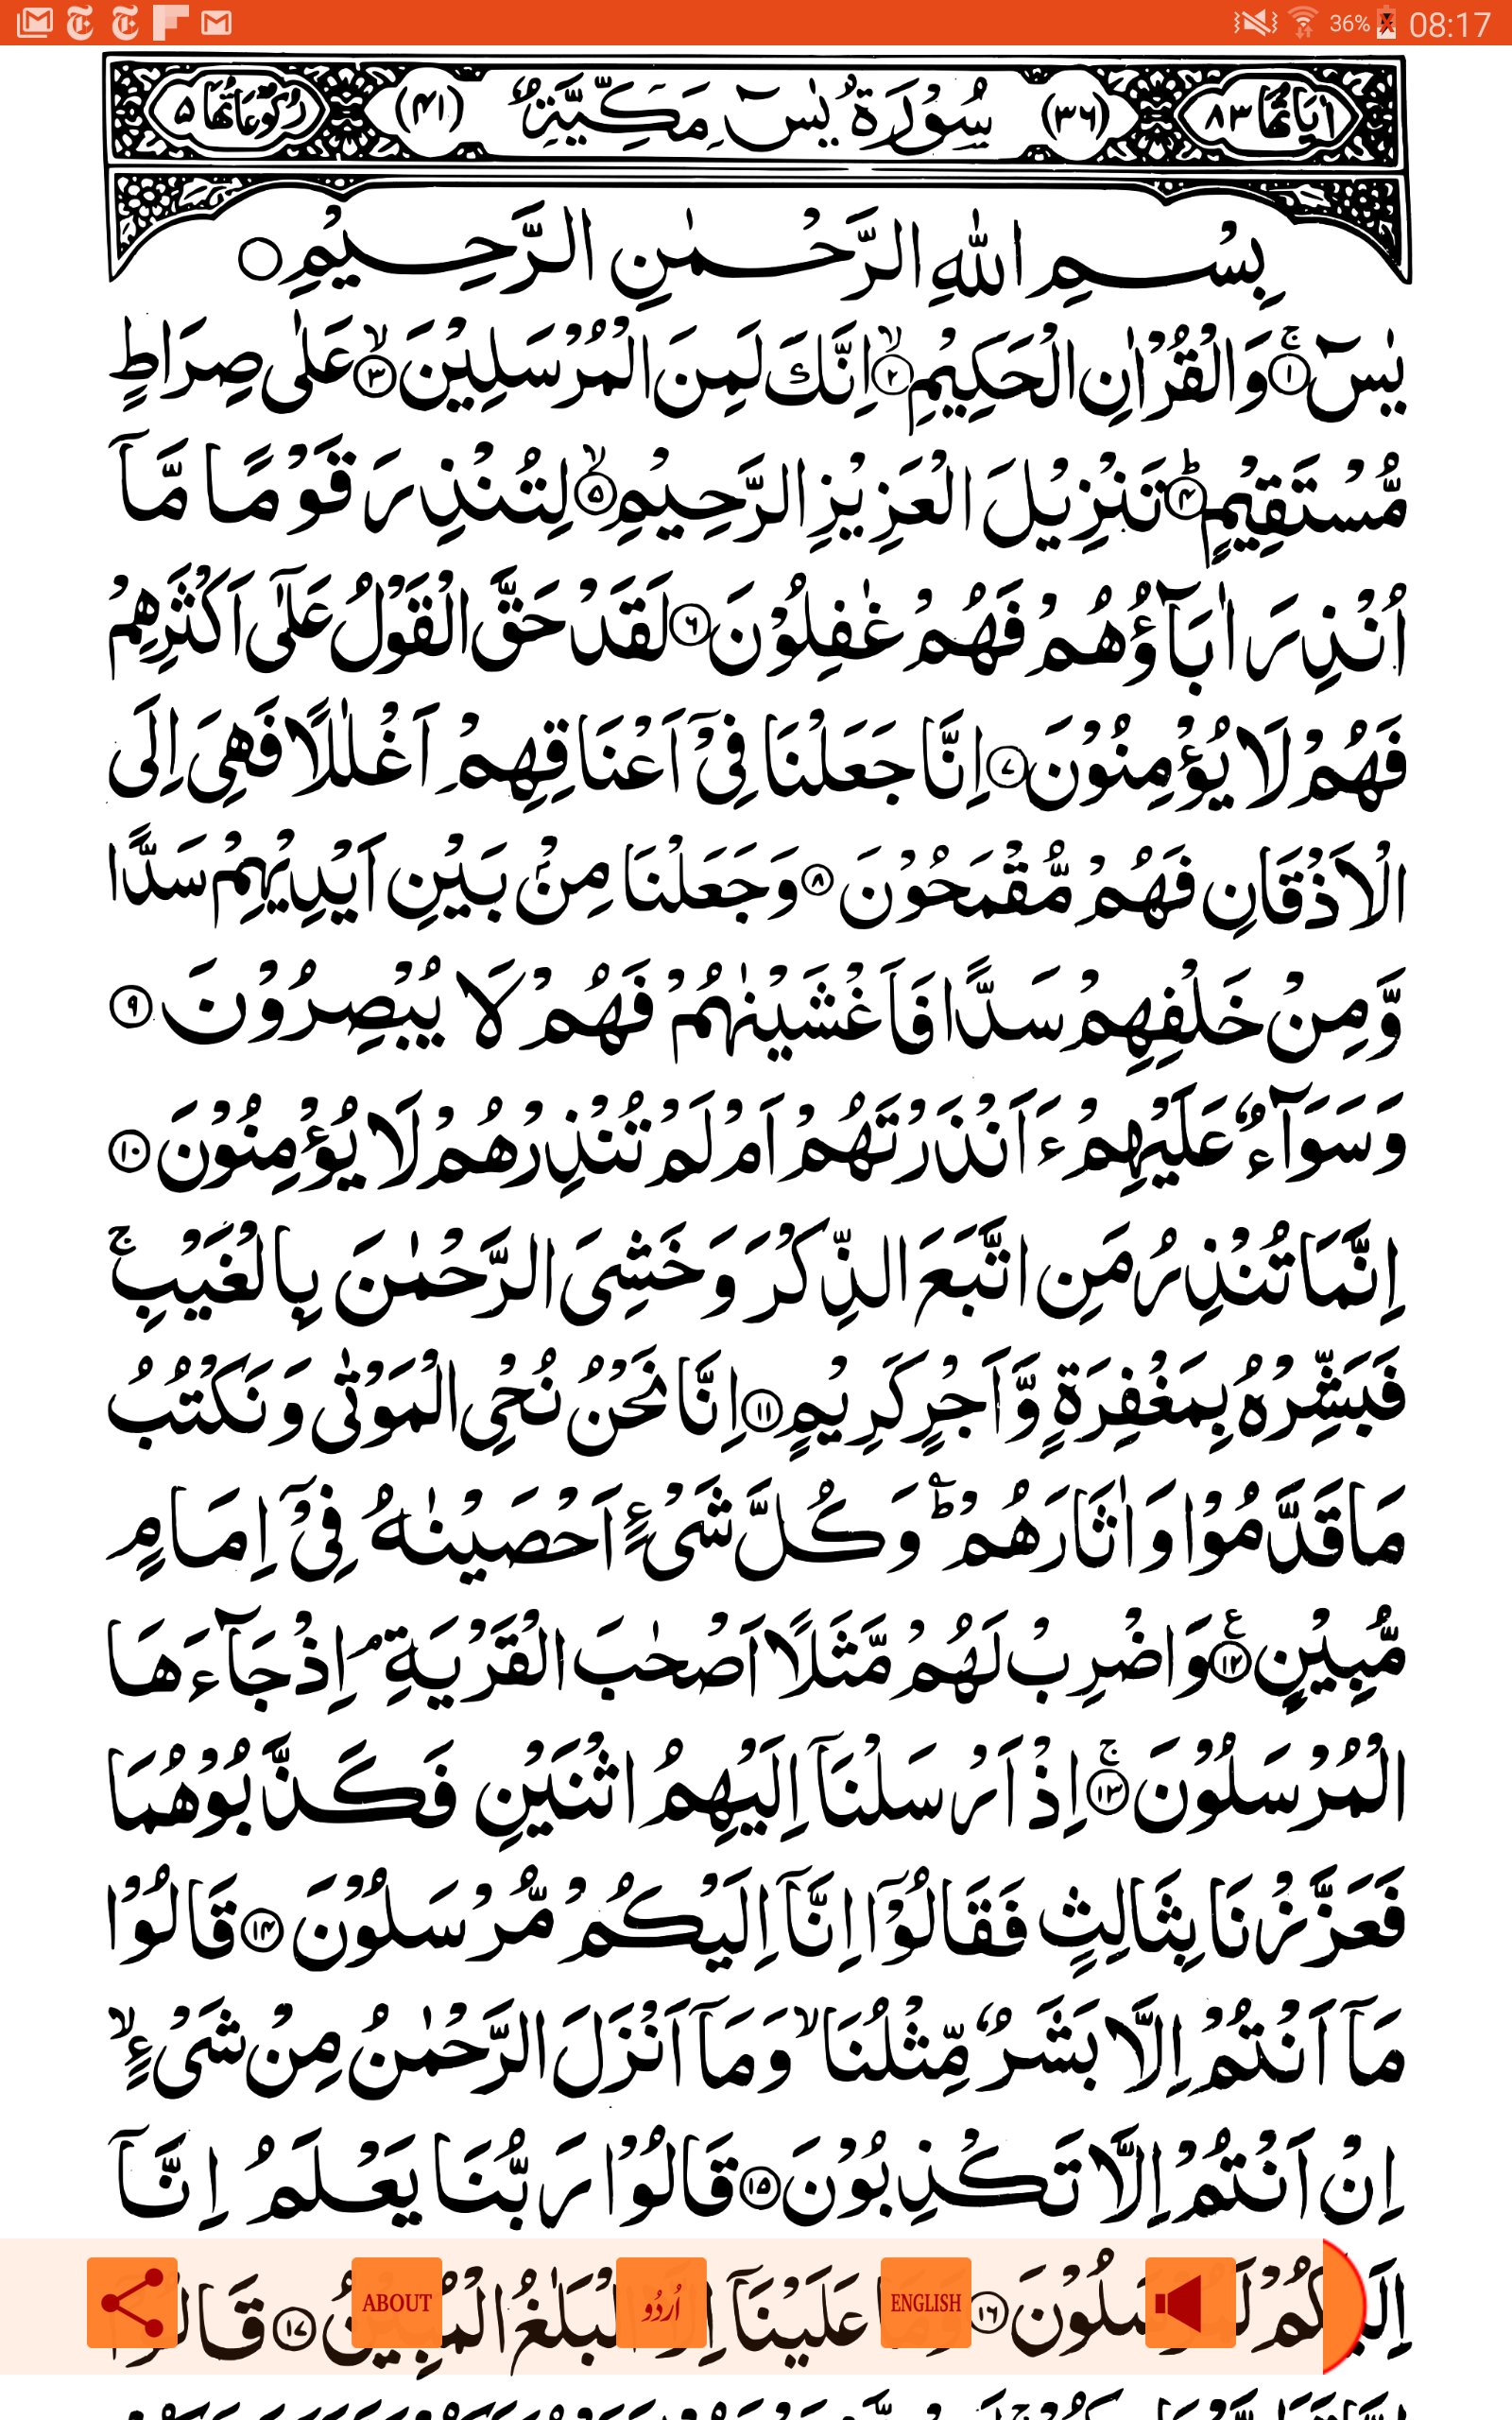 36% 08:17
اٰيَاتُهَا ٨٣ (٣٦) سُوْرَةُ يٰسٓ مَكِّيَّةٌ (٤١) رُكُوْعَاتُهَا ٥
بِسْمِ اللّٰهِ الرَّحْمٰنِ الرَّحِيْمِ
يٰسٓ ۚ﴿١﴾ وَالْقُرْاٰنِ الْحَكِيْمِ ۙ﴿٢﴾ اِنَّكَ لَمِنَ الْمُرْسَلِيْنَ ۙ﴿٣﴾ عَلٰى صِرَاطٍ
مُّسْتَقِيْمٍ ؕ﴿٤﴾ تَنْزِيْلَ الْعَزِيْزِ الرَّحِيْمِ ۙ﴿٥﴾ لِتُنْذِرَ قَوْمًا مَّاۤ
اُنْذِرَ اٰبَآؤُهُمْ فَهُمْ غٰفِلُوْنَ ﴿٦﴾ لَقَدْ حَقَّ الْقَوْلُ عَلٰٓى اَكْثَرِهِمْ
فَهُمْ لَا يُؤْمِنُوْنَ ﴿٧﴾ اِنَّا جَعَلْنَا فِيْٓ اَعْنَاقِهِمْ اَغْلٰلًا فَهِيَ اِلَى
الْاَذْقَانِ فَهُمْ مُّقْمَحُوْنَ ﴿٨﴾ وَجَعَلْنَا مِنْۢ بَيْنِ اَيْدِيْهِمْ سَدًّا
وَّمِنْ خَلْفِهِمْ سَدًّا فَاَغْشَيْنٰهُمْ فَهُمْ لَا يُبْصِرُوْنَ ﴿٩﴾
وَسَوَآءٌ عَلَيْهِمْ ءَاَنْذَرْتَهُمْ اَمْ لَمْ تُنْذِرْهُمْ لَا يُؤْمِنُوْنَ ﴿١٠﴾
اِنَّمَا تُنْذِرُ مَنِ اتَّبَعَ الذِّكْرَ وَخَشِيَ الرَّحْمٰنَ بِالْغَيْبِ ۚ
فَبَشِّرْهُ بِمَغْفِرَةٍ وَّاَجْرٍ كَرِيْمٍ ﴿١١﴾ اِنَّا نَحْنُ نُحْيِ الْمَوْتٰى وَنَكْتُبُ
مَا قَدَّمُوْا وَاٰثَارَهُمْ ؕ وَكُلَّ شَيْءٍ اَحْصَيْنٰهُ فِيْٓ اِمَامٍ
مُّبِيْنٍ ﴿١٢﴾ وَاضْرِبْ لَهُمْ مَّثَلًا اَصْحٰبَ الْقَرْيَةِ ۘ اِذْ جَآءَهَا
الْمُرْسَلُوْنَ ۚ﴿١٣﴾ اِذْ اَرْسَلْنَاۤ اِلَيْهِمُ اثْنَيْنِ فَكَذَّبُوْهُمَا
فَعَزَّزْنَا بِثَالِثٍ فَقَالُوْٓا اِنَّاۤ اِلَيْكُمْ مُّرْسَلُوْنَ ﴿١٤﴾ قَالُوْا
مَاۤ اَنْتُمْ اِلَّا بَشَرٌ مِّثْلُنَا ۙ وَمَاۤ اَنْزَلَ الرَّحْمٰنُ مِنْ شَيْءٍ ۙ
اِنْ اَنْتُمْ اِلَّا تَكْذِبُوْنَ ﴿١٥﴾ قَالُوْا رَبُّنَا يَعْلَمُ اِنَّاۤ
اِلَيْكُمْ لَمُرْسَلُوْنَ ﴿١٦﴾ وَمَا عَلَيْنَاۤ اِلَّا الْبَلٰغُ الْمُبِيْنُ ﴿١٧﴾ قَالُوْٓا
ABOUT اُردُو ENGLISH